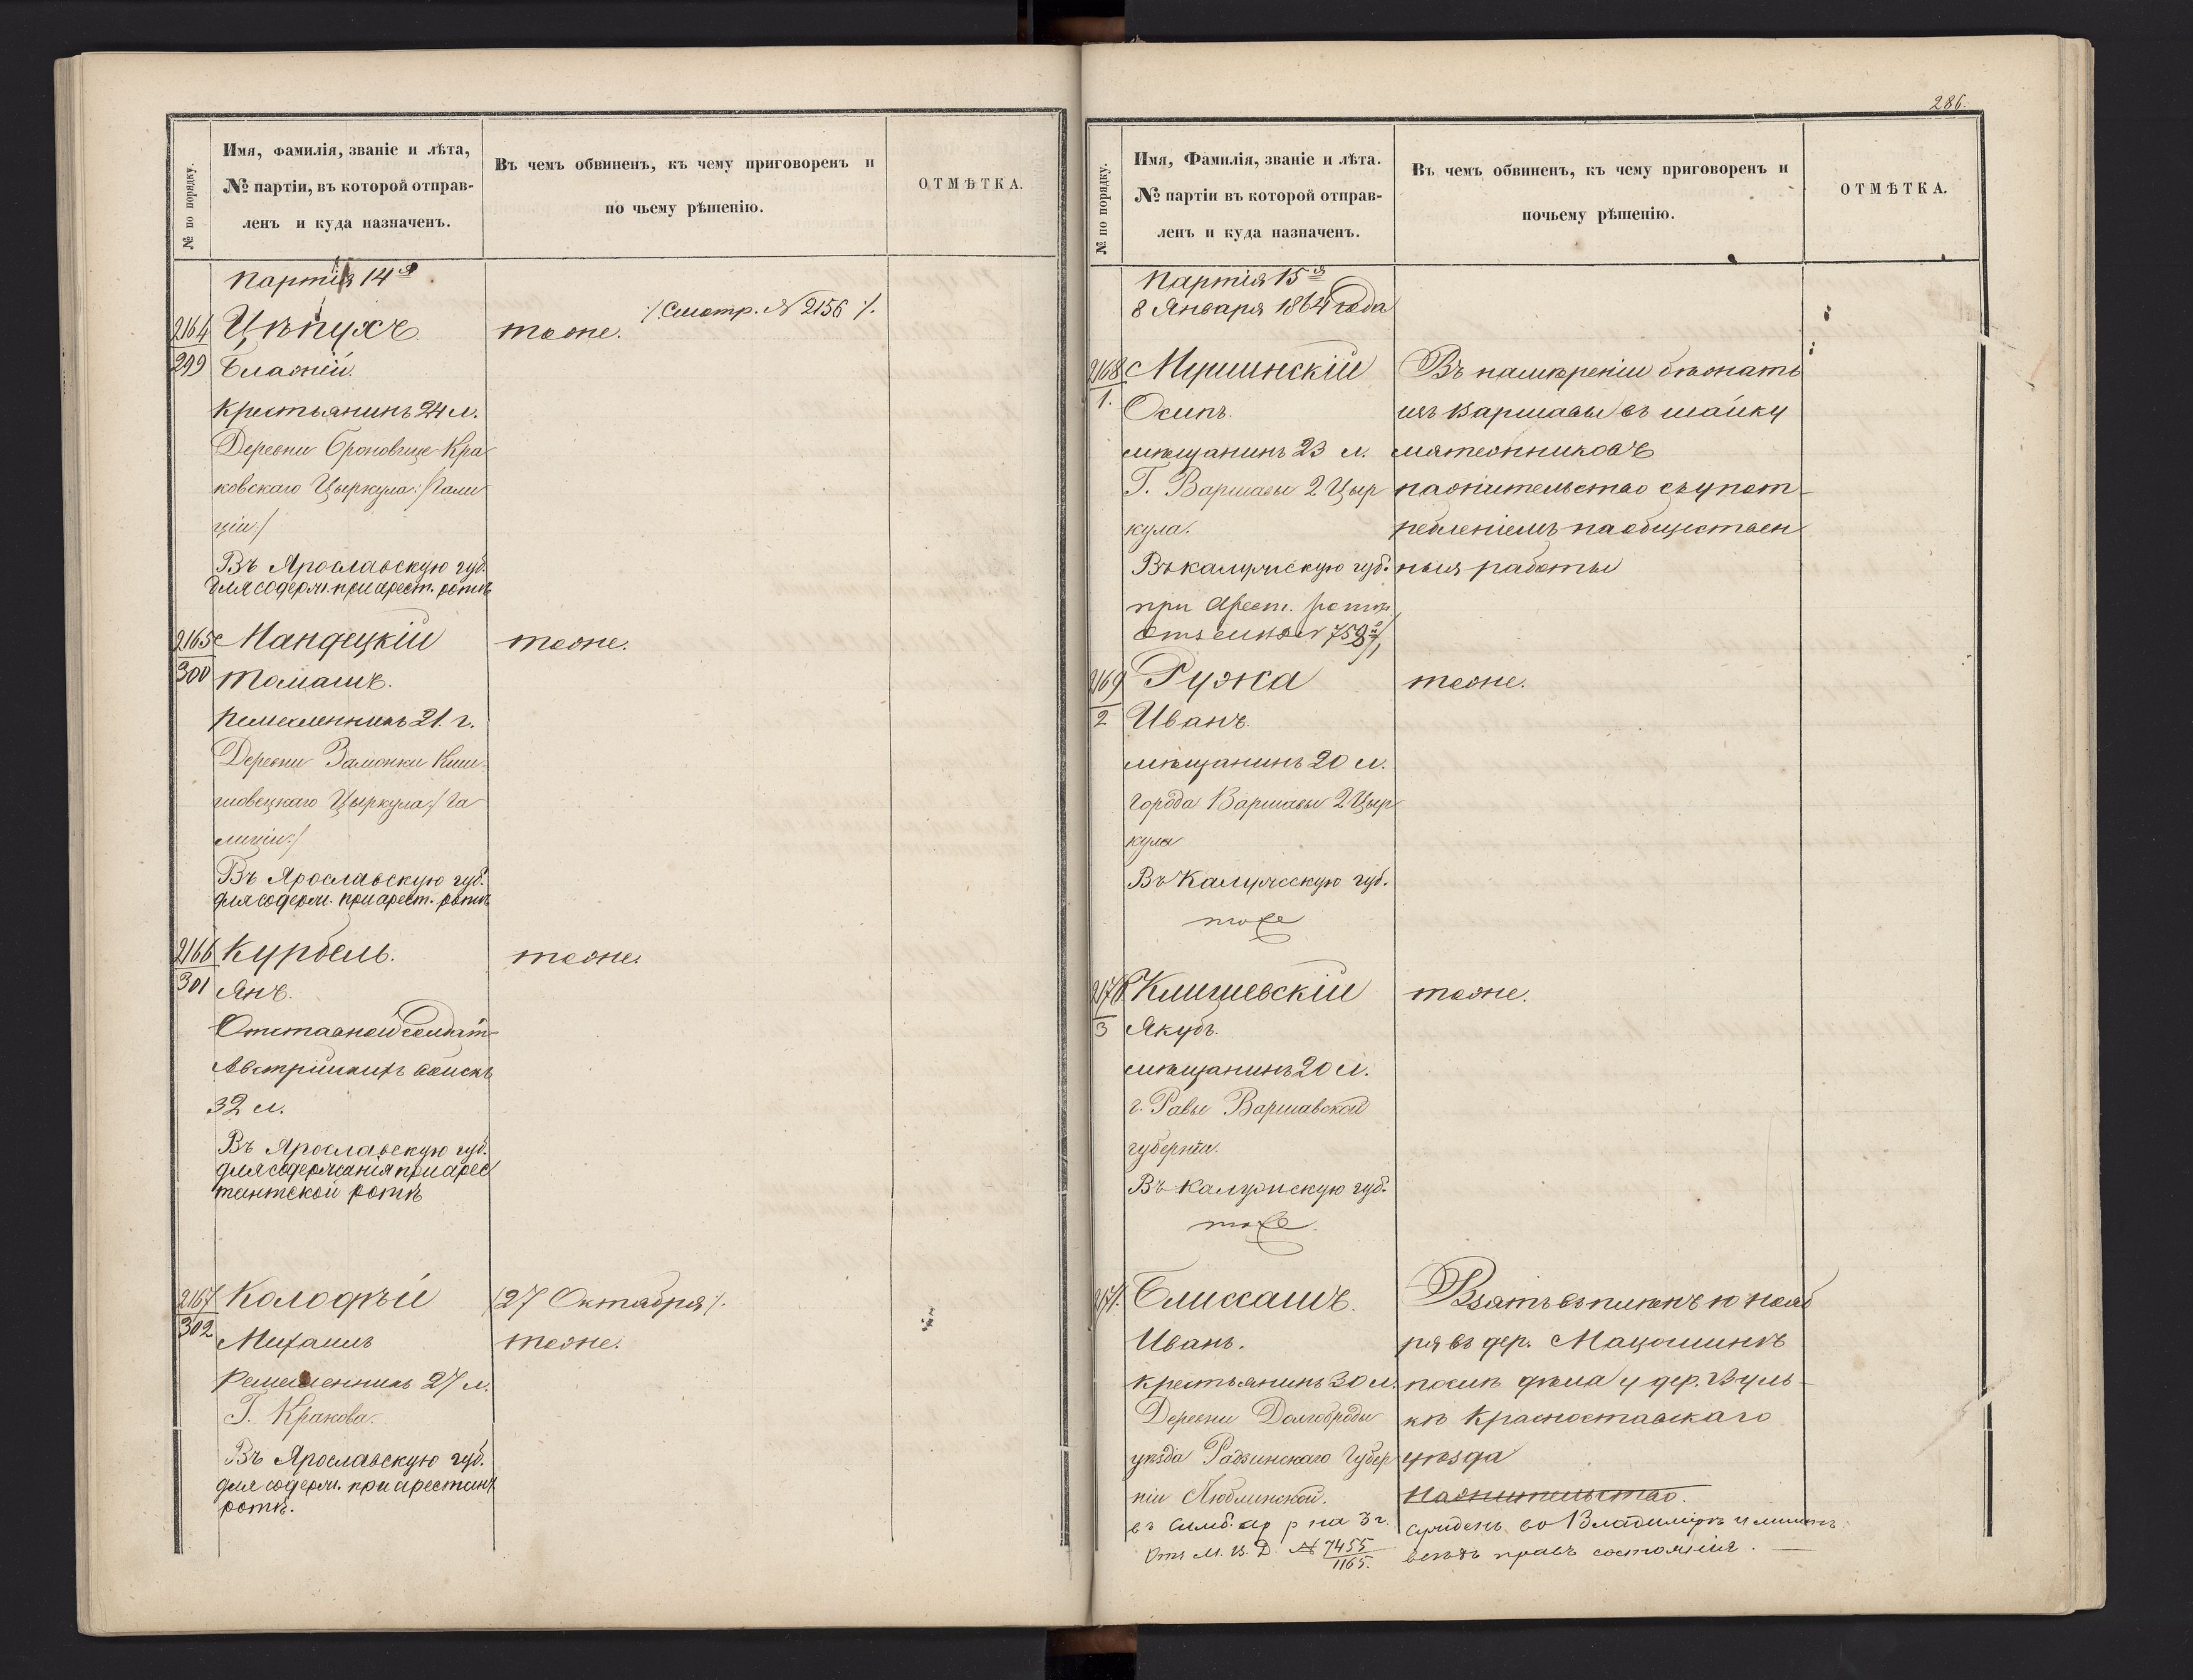 № по порядку.
Имя, фамилія, званіе и лѣта,
№ партіи, въ которой отправ-
ленъ и куда назначенъ.
Въ чемъ обвиненъ, къ чему приговоренъ и
по чьему рѣшенію.
ОТМѢТКА.
Партія 14я
/:Смотр. N 2156:/.
2164 Цѣпухъ тоже.
299 Блажій.
Крестьянинъ 24 л.
Деревни Броновице Кра
ковскаго Цыркула :/Гали
ціи:/
Въ Ярославскую губ.
для содерж. при арест. ротѣ
2165 Мандецкій тоже.
300 Томашъ.
Ремесленникъ 21. г.
Деревни
Цыркула:/Га
лиціи:/
Въ Ярославскую губ.
для содерж. при арест. ротѣ
2166 Курбель. тоже.
301 Янъ.
Отставной солдатъ
Австрійскихъ войскъ
32 л.
Въ Ярославскую губ.
для содержанія при арес
тантской ротѣ
2167 Колофѣй /27 Октября/.
302 Михаилъ тоже.
Ремесленникъ 27 л.
Г. Кракова.
Въ Ярославскую губ.
для содерж. при арестант.
ротѣ.
286.
№ по порядку.
Имя, Фамилія, званіе и лѣта.
№ партіи въ которой отправ-
ленъ и куда назначенъ.
Въ чемъ обвиненъ, къ чему приговоренъ и
почьему рѣшенію.
ОТМѢТКА.
Партія 15я
8 Января 1864 года
2168 Мушинскій Въ намѣреніи бѣжать
1. Осипъ. изъ Варшавы въ шайку
мѣщанинъ 23 л. мятежниковъ
Г. Варшавы 2 Цыр на жительство съ упот-
кула. ребленіемъ на обществен
Въ Калужскую губ. ныя работы
при Арест. ротѣ
2169 Ружа тоже.
2 Иванъ.
мѣщанинъ 20 л.
Города Варшавы 2 Цыр
кула
Въ Калужскую губ.
тоже
2170 Клишевскій тоже.
3 Якубъ.
мѣщанинъ 20 л.
г. Равы Варшавской
губерніи.
Въ Калужскую губ.
тоже.
2171. Блиссашъ. Взятъ въ плѣнъ 10 нояб
Иванъ. ря въ дер. Мацошинкѣ
крестьянинъ 30 л. послѣ дѣла у дер. Вуль-
Деревни Долгоброды кѣ Красноставскаго
уѣзда Радзинскаго Губер уѣзда
ніи Люблинской. На жительство.
въ Симб. ар р на 3 г. Сужденъ во Владимірѣ и лишенъ
Отъ М. В. Д. N 7455/1165. всѣхъ правъ состоянія. —